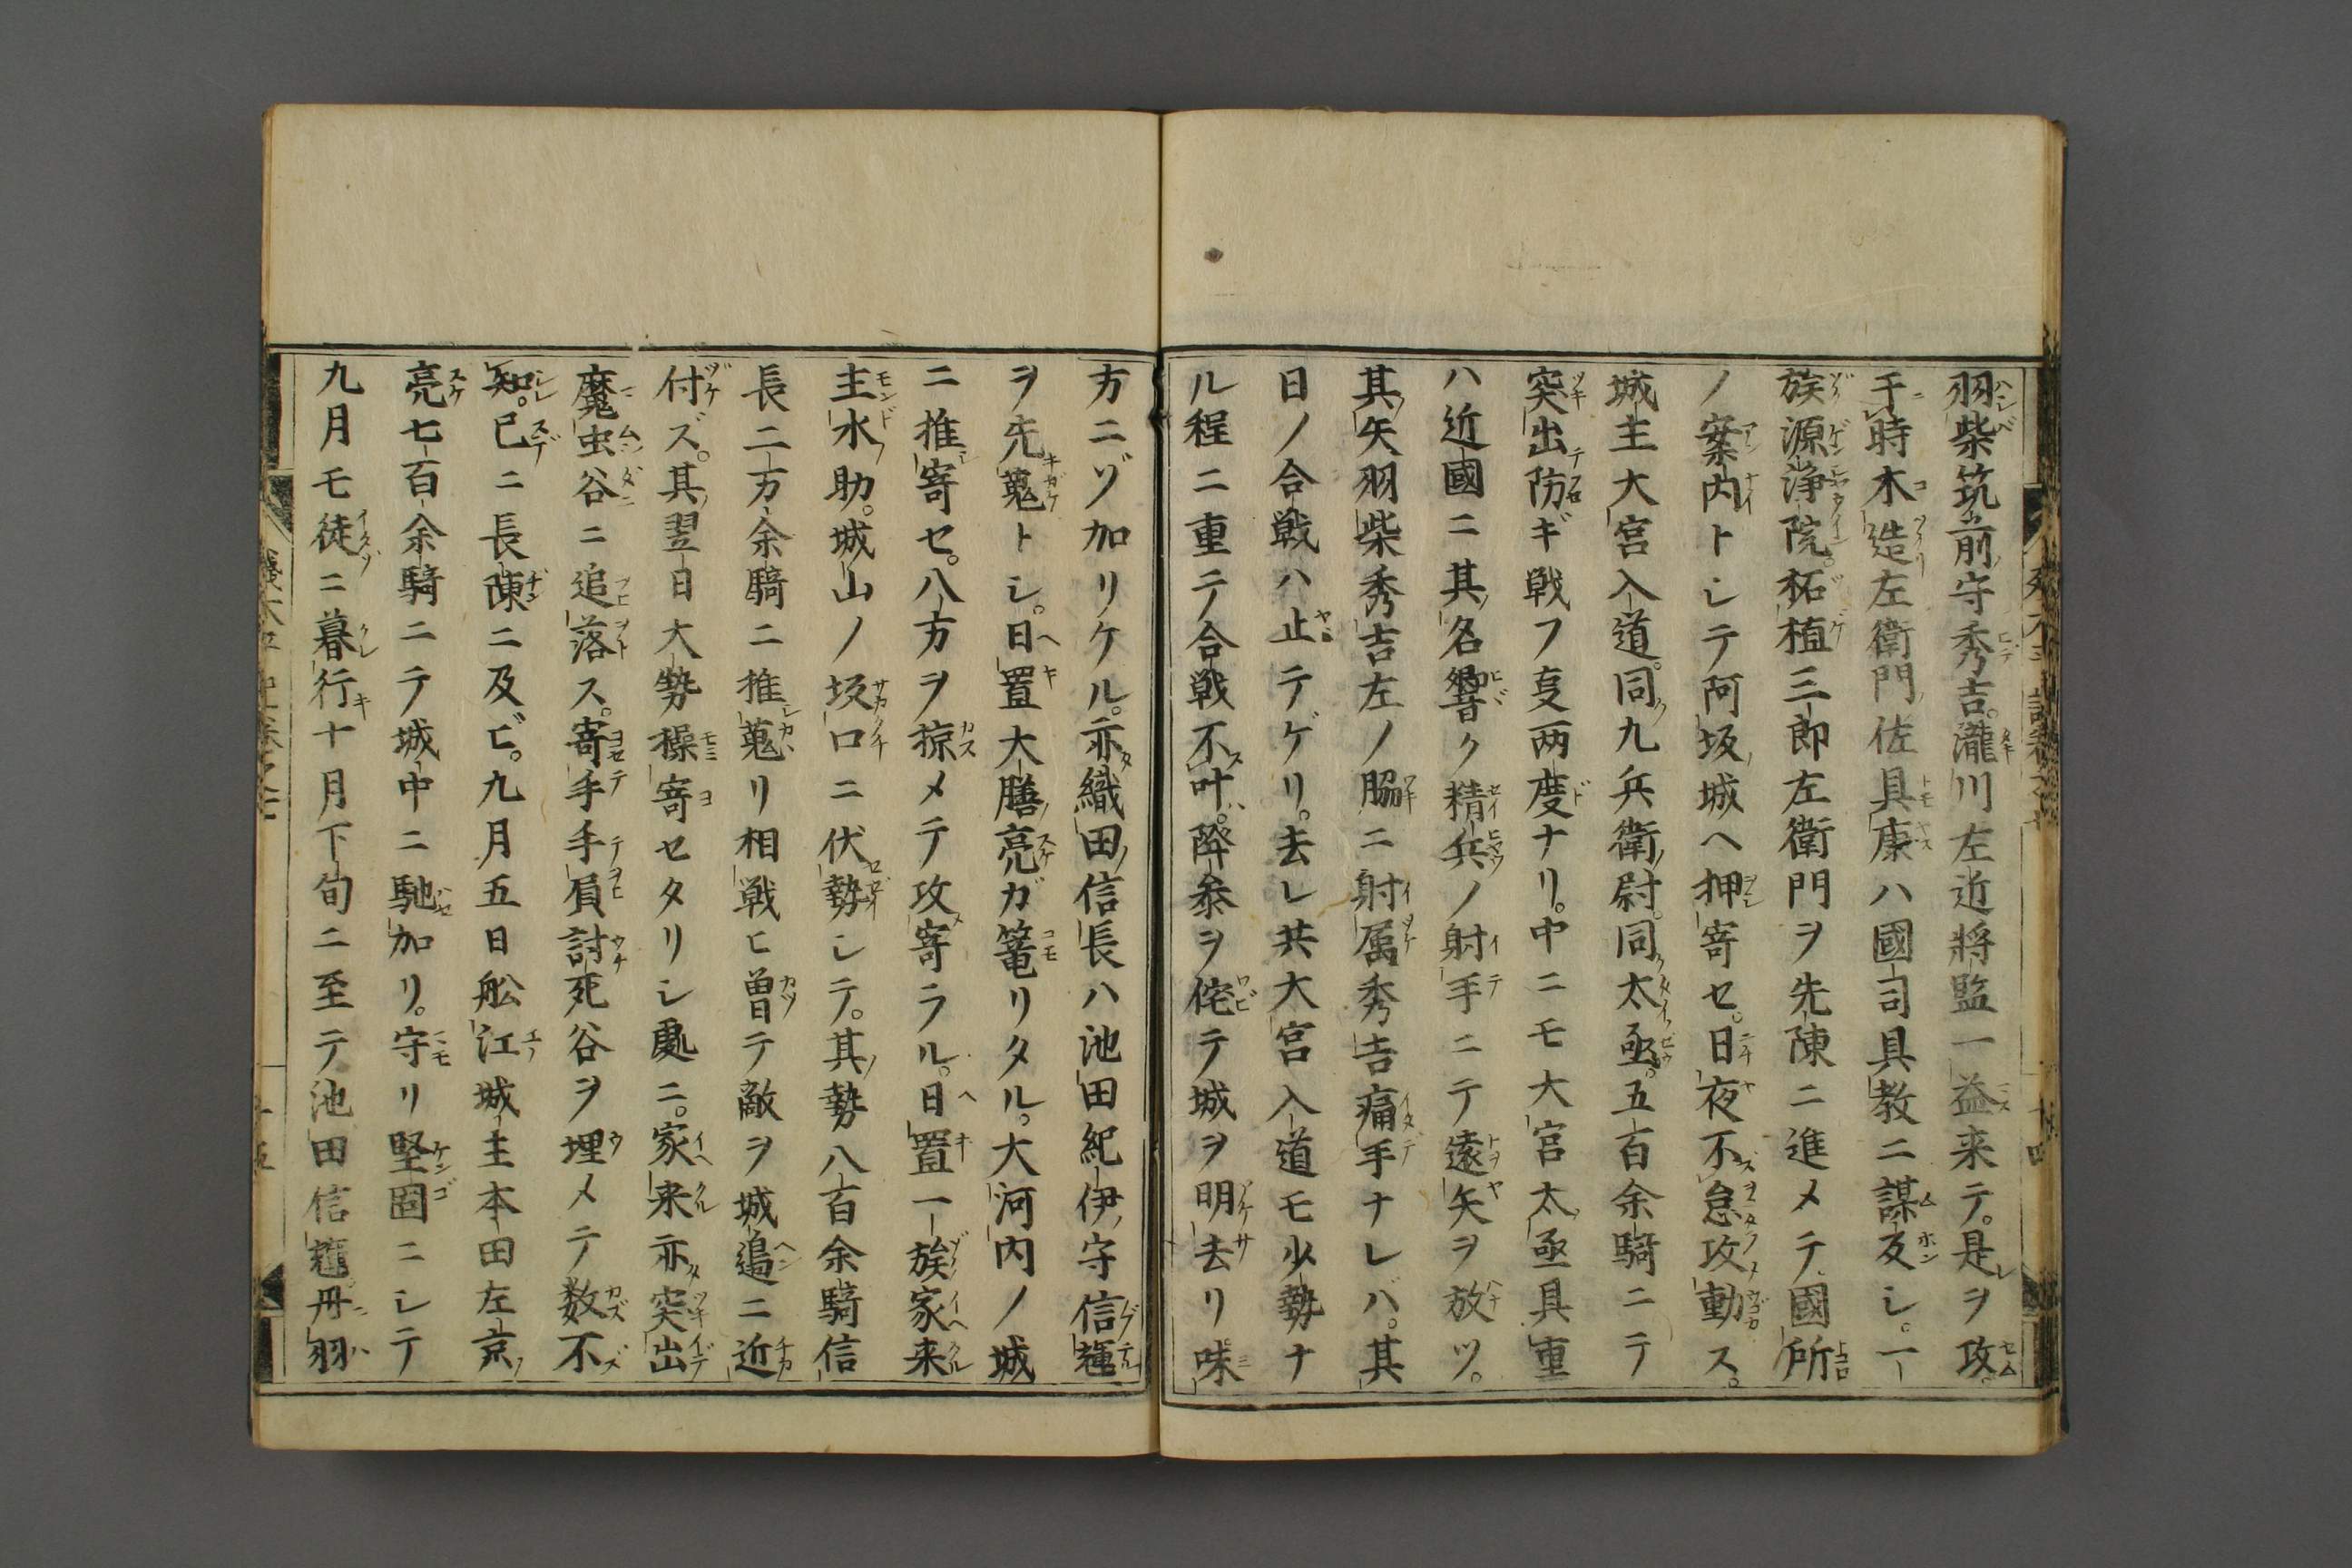 羽柴筑前守秀吉。瀧川左近將監一益来テ。是ヲ攻。
于時木造左衛門佐具康ハ國司具教ニ謀反シ。一
族源浄院。柘植三郎左衛門ヲ先陳ニ進メテ國所
ノ案内トシテ阿坂城ヘ押寄セ。日夜不怠攻動ス。
城主大宮入道。同九兵衛尉。同太亟。五百余騎ニテ
突出防ギ戦フ㕝両度ナリ。中ニモ大宮太亟具重
ハ近國ニ其名響ク精兵ノ射手ニテ遠矢ヲ放ツ。
其矢羽柴秀吉左ノ脇ニ射属秀吉痛手ナレバ。其
日ノ合戦ハ止テゲリ。去レ共大宮入道モ少勢ナ
ル程ニ重テノ合戦不叶。降参ヲ侘テ城ヲ明去リ味
方ニゾ加リケル。亦織田信長ハ池田紀伊守信輝
ヲ先蒐トシ。日置大膳亮ガ篭リタル。大河内ノ城
ニ推寄セ。八方ヲ掠メテ攻寄ラル。日置一族家来
主水助。城山ノ坂口ニ伏勢シテ。其勢八百余騎信
長二万余騎ニ推蒐リ相戦ヒ曽テ敵ヲ城邉ニ近
付ズ。其翌日大勢操寄セタリシ處ニ。家来亦突出
魔虫谷ニ追落ス。寄手手負討死谷ヲ埋メテ数不
知。已ニ長陳ニ及ビ。九月五日舩江城主本田左京
亮七百余騎ニテ城中ニ馳加リ。守リ堅固ニシテ
九月モ徒ニ暮行十月下旬ニ至テ池田信輝丹羽